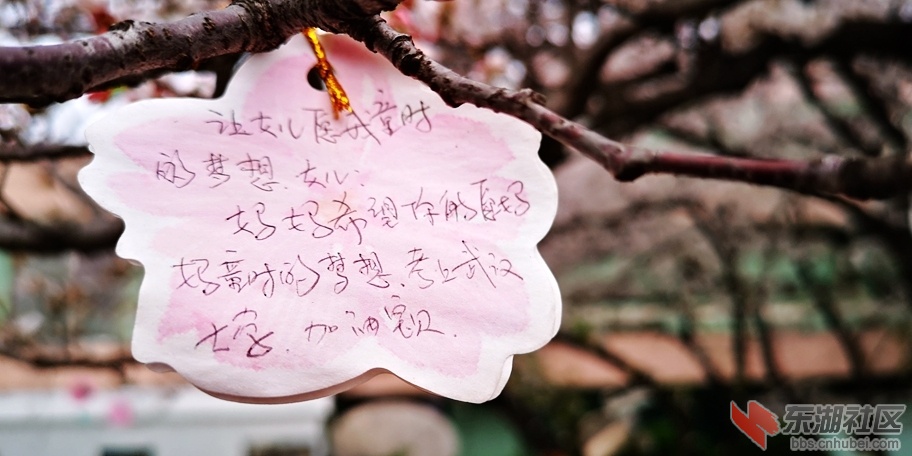 让女儿圆我童时
的梦想.女儿.
妈妈希望你能圆好
妈童时的梦想.考上武汉
大学.加油宝贝.
东湖社区
bbs.cnhubei.com